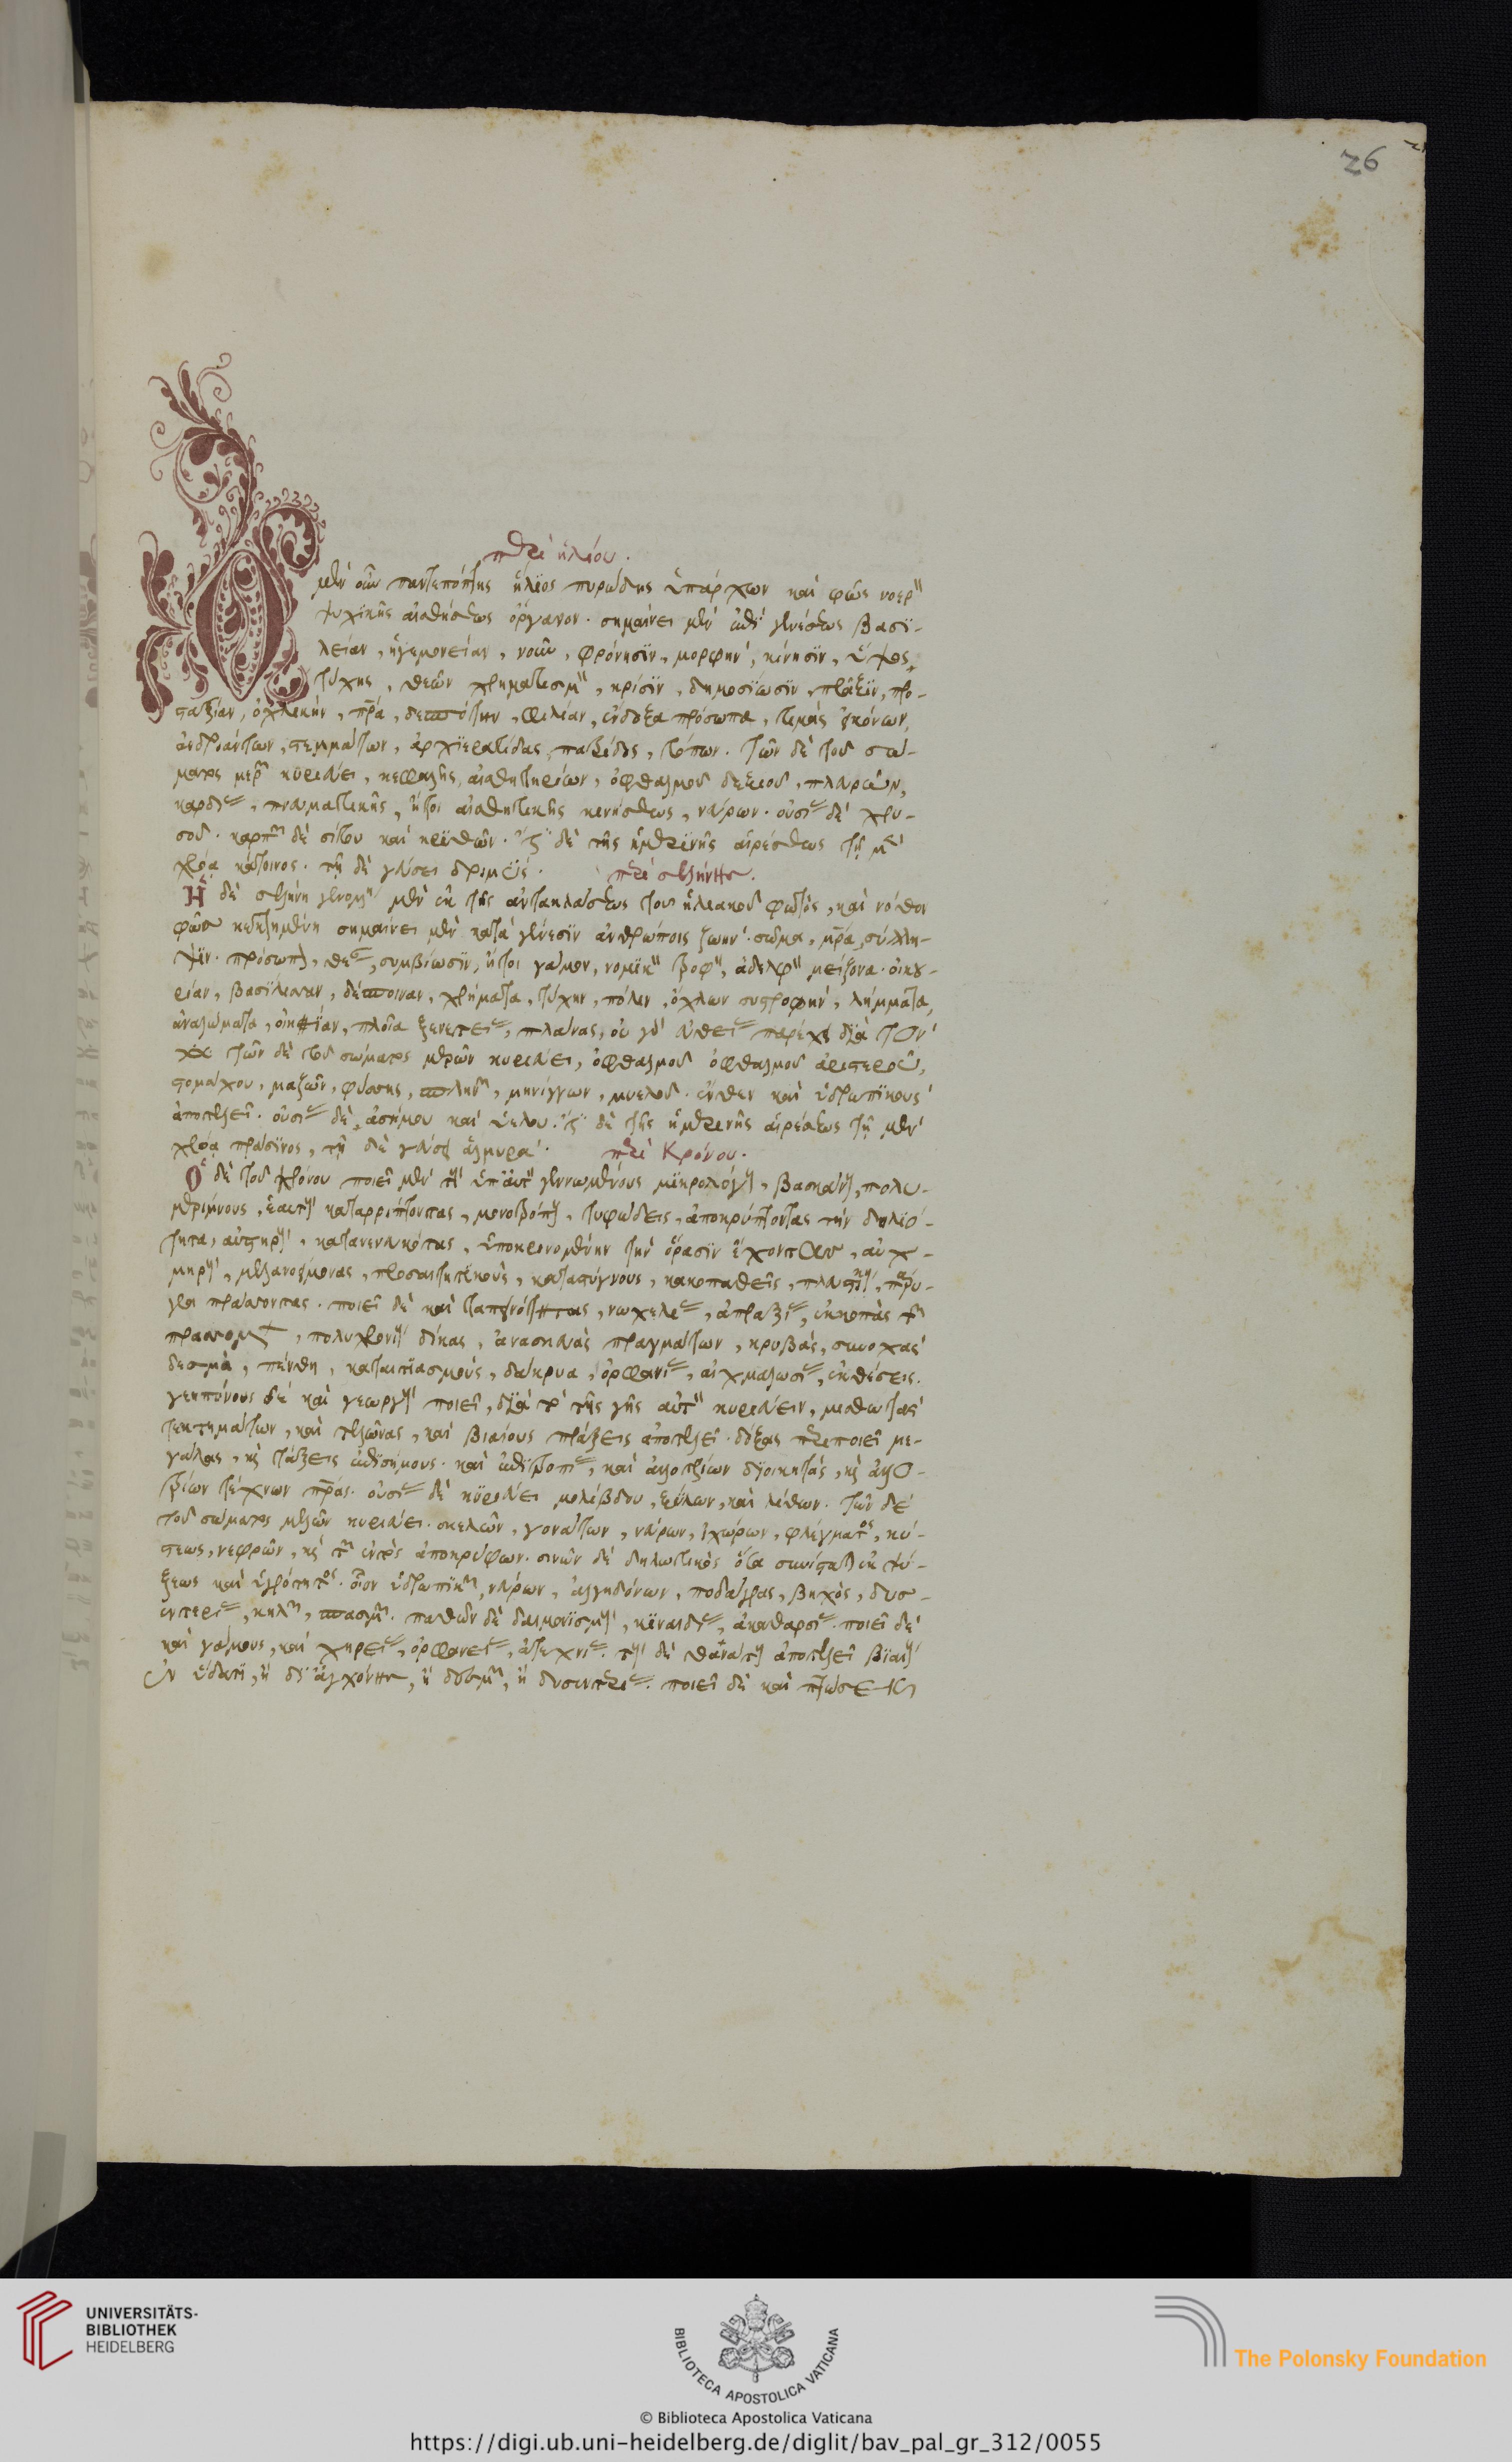 26
περὶ ἡλίου.
Ὁ μὲν οὖν παντεπόπτης ἥλϊος πυρώδης ὑπάρχων καὶ φῶς νοερὸν
ψυχικῆς αἰσθήσεως ὄργανον. σημαίνει μὲν ἐπὶ γενέσεως βασϊ-
λείαν, ἡγεμονείαν, νοῦν, φρόνησϊν, μορφὴν, κίνησϊν, ὕψος
τύχης, θεῶν χρηματισμὸν, κρίσϊν, δημοσϊωσϊν, πρᾶξϊν, προ-
στασίαν, ὀχλικὴν, πρα, δεσπότην, φιλίαν, ἔνδοξα πρόσωπα, τιμὰς εἰκόνων,
ἀνδριάντων, στεμμάτων, ἀρχϊερατίδας, πατρίδος, τόπων. τῶν δὲ τοῦ σώ-
ματος μερῶν κυριεύει, κεφαλῆς, αἰσθητηρίων, ὀφθαλμοῦ δεξιοῦ, πλευρῶν,
καρδίας, πνευματικῆς, ἤτοι αἰσθητικῆς κινήσεως, νεύρων. οὐσίας δὲ χρυ-
σοῦ. καρπῶν δὲ σίτου καὶ κρϊθῶν. δὲ τῆς ἡμερϊνῆς αἱρέσεως τῇ μὲν
χρόᾳ κίτρινος. τῇ δὲ γεύσει δριμύς. περὶ σελήνης.
Ἡ δὲ σελήνη γενομένη μὲν ἐκ τῆς ἀντανακλάσεως τοῦ ἡλιακοῦ φωτὸς, καὶ νόθον
φῶς κεκτημένη σημαίνει μὲν κατὰ γένεσϊν ἀνθρώποις ζωὴν. σῶμα, μρα, σύλλη-
ψϊν. πρόσωπον, θεὰν, συμβίωσϊν, ἤτοι γάμον, νομϊκὸν τροφὸν, ἀδελφὸν μείζονα. οἰκου-
ρίαν, βασϊλισσαν, δέσποιναν, χρήματα, τύχην, πόλιν, ὄχλων συστροφὴν, λήμματα,
ἀναλώματα, οἰκίαν, πλοῖα ξενιτείας, πλάνας, οὐ γὰρ εὐθείας παρέχει δϊὰ τὸν
τῶν δὲ τοῦ σώματος μερῶν κυριεύει, ὀφθαλμοῦ ὀφθαλμοῦ ἀριστεροῦ,
στομάχου, μαζῶν, φύσης, σπληνὸς, μηνίγγων, μυελοῦ. ἔνθεν καὶ ὑδρωπϊκοὺς
ἀποτελεῖ. οὐσίας δὲ, ἀσήμου καὶ ὑέλου. δὲ τῆς ἡμερινῆς αἱρέσεως τῇ μὲν
χρόᾳ πράσϊνος, τῇ δὲ γεύσει ἁλμυρά. περὶ Κρόνου.
Ὁ δὲ τοῦ κρόνου ποιεῖ μὲν τοὺς ὑπ' αὐτὸν γεννωμένους μϊκρολόγους, βασκάνους, πολυ-
μερίμνους, ἑαυτοὺς καταρρίπτοντας, μονοτρόπους, τυφώδεις, ἀποκρύπτοντας τὴν δολϊό-
τητα, αὐστηροὺς, κατανενευκότας, ὑποκρινομένην τὴν ὅρασϊν ἔχοντας, αὐχ-
μηροὺς, μελανοείμονας, προσαιτητϊκοὺς, καταστύγνους, κακοπαθεῖς, πλευστικοὺς, πάρυ-
γρα πράσσοντας. ποιεῖ δὲ καὶ ταπεινότητας, νωχελίας, ἀπραξίας, ἐκκοπὰς τῶν
πρασσομένων, πολυχρονίους δίκας, ἀνασκευὰς πραγμάτων, κρυβὰς, συνοχὰς
δεσμὰ, πένθη, καταιτϊασμοὺς, δάκρυα, ὀρφανίας, αἰχμαλωσίας, ἐκθέσεις.
γειπόνους δὲ καὶ γεωργοὺς ποιεῖ, δϊὰ τὸ τῆς γῆς αὐτὸν κυριεύειν, μισθωτὰς
τεκτημάτων, καὶ τελώνας, καὶ βιαίους πράξεις ἀποτελεῖ. δόξας περιποιεῖ με-
γάλας, καὶ τάξεις ἐπϊσήμους. καὶ ἐπϊτροπίας, καὶ ἀλλοτρίων δϊοικητὰς, καὶ ἀλλο-
τρίων τέκνων πρας. οὐσίας δὲ κϋριεύει μολίβδου, ξύλων, καὶ λίθων. τῶν δὲ
τοῦ σώματος μελῶν κυριεύει. σκελῶν, γονάτων, νεύρων, ἰχώρων, φλέγματος, κύ-
στεως, νεφρῶν, καὶ τῶν ἐντὸς ἀποκρύφων. σινῶν δὲ δηλωτικὸς ὅσα συνίσταται ἐκ ψύ-
ξεως καὶ ὑγρότητος. οἷον ὑδρωπϊκῶν, νεύρων, ἀλγηδόνων, ποδάγρας, βηχὸς, δυσ-
εντερίας, κηλῶν, σπασμῶν. παθῶν δὲ δαιμονϊσμοὺς, κϊναιδίας, ἀκαθαρσίας. ποιεῖ δὲ
καὶ γάμους, καὶ χηρείας, ὀρφανείας, ἀτεκνίας. τοὺς δὲ θανάτους ἀποτελεῖ βϊαίους
ἐν ὕδατϊ, ἢ δι' ἀγχόνης, ἢ δεσμῶν, ἢ δυσεντερίας. ποιεῖ δὲ καὶ πτώσεις
UNIVERSITÄTS-
BIBLIOTHEK
HEIDELBERG
BIBLIOTECA APOSTOLICA VATICANA
© Biblioteca Apostolica Vaticana
The Polonsky Foundation
https://digi.ub.uni-heidelberg.de/diglit/bav_pal_gr_312/0055